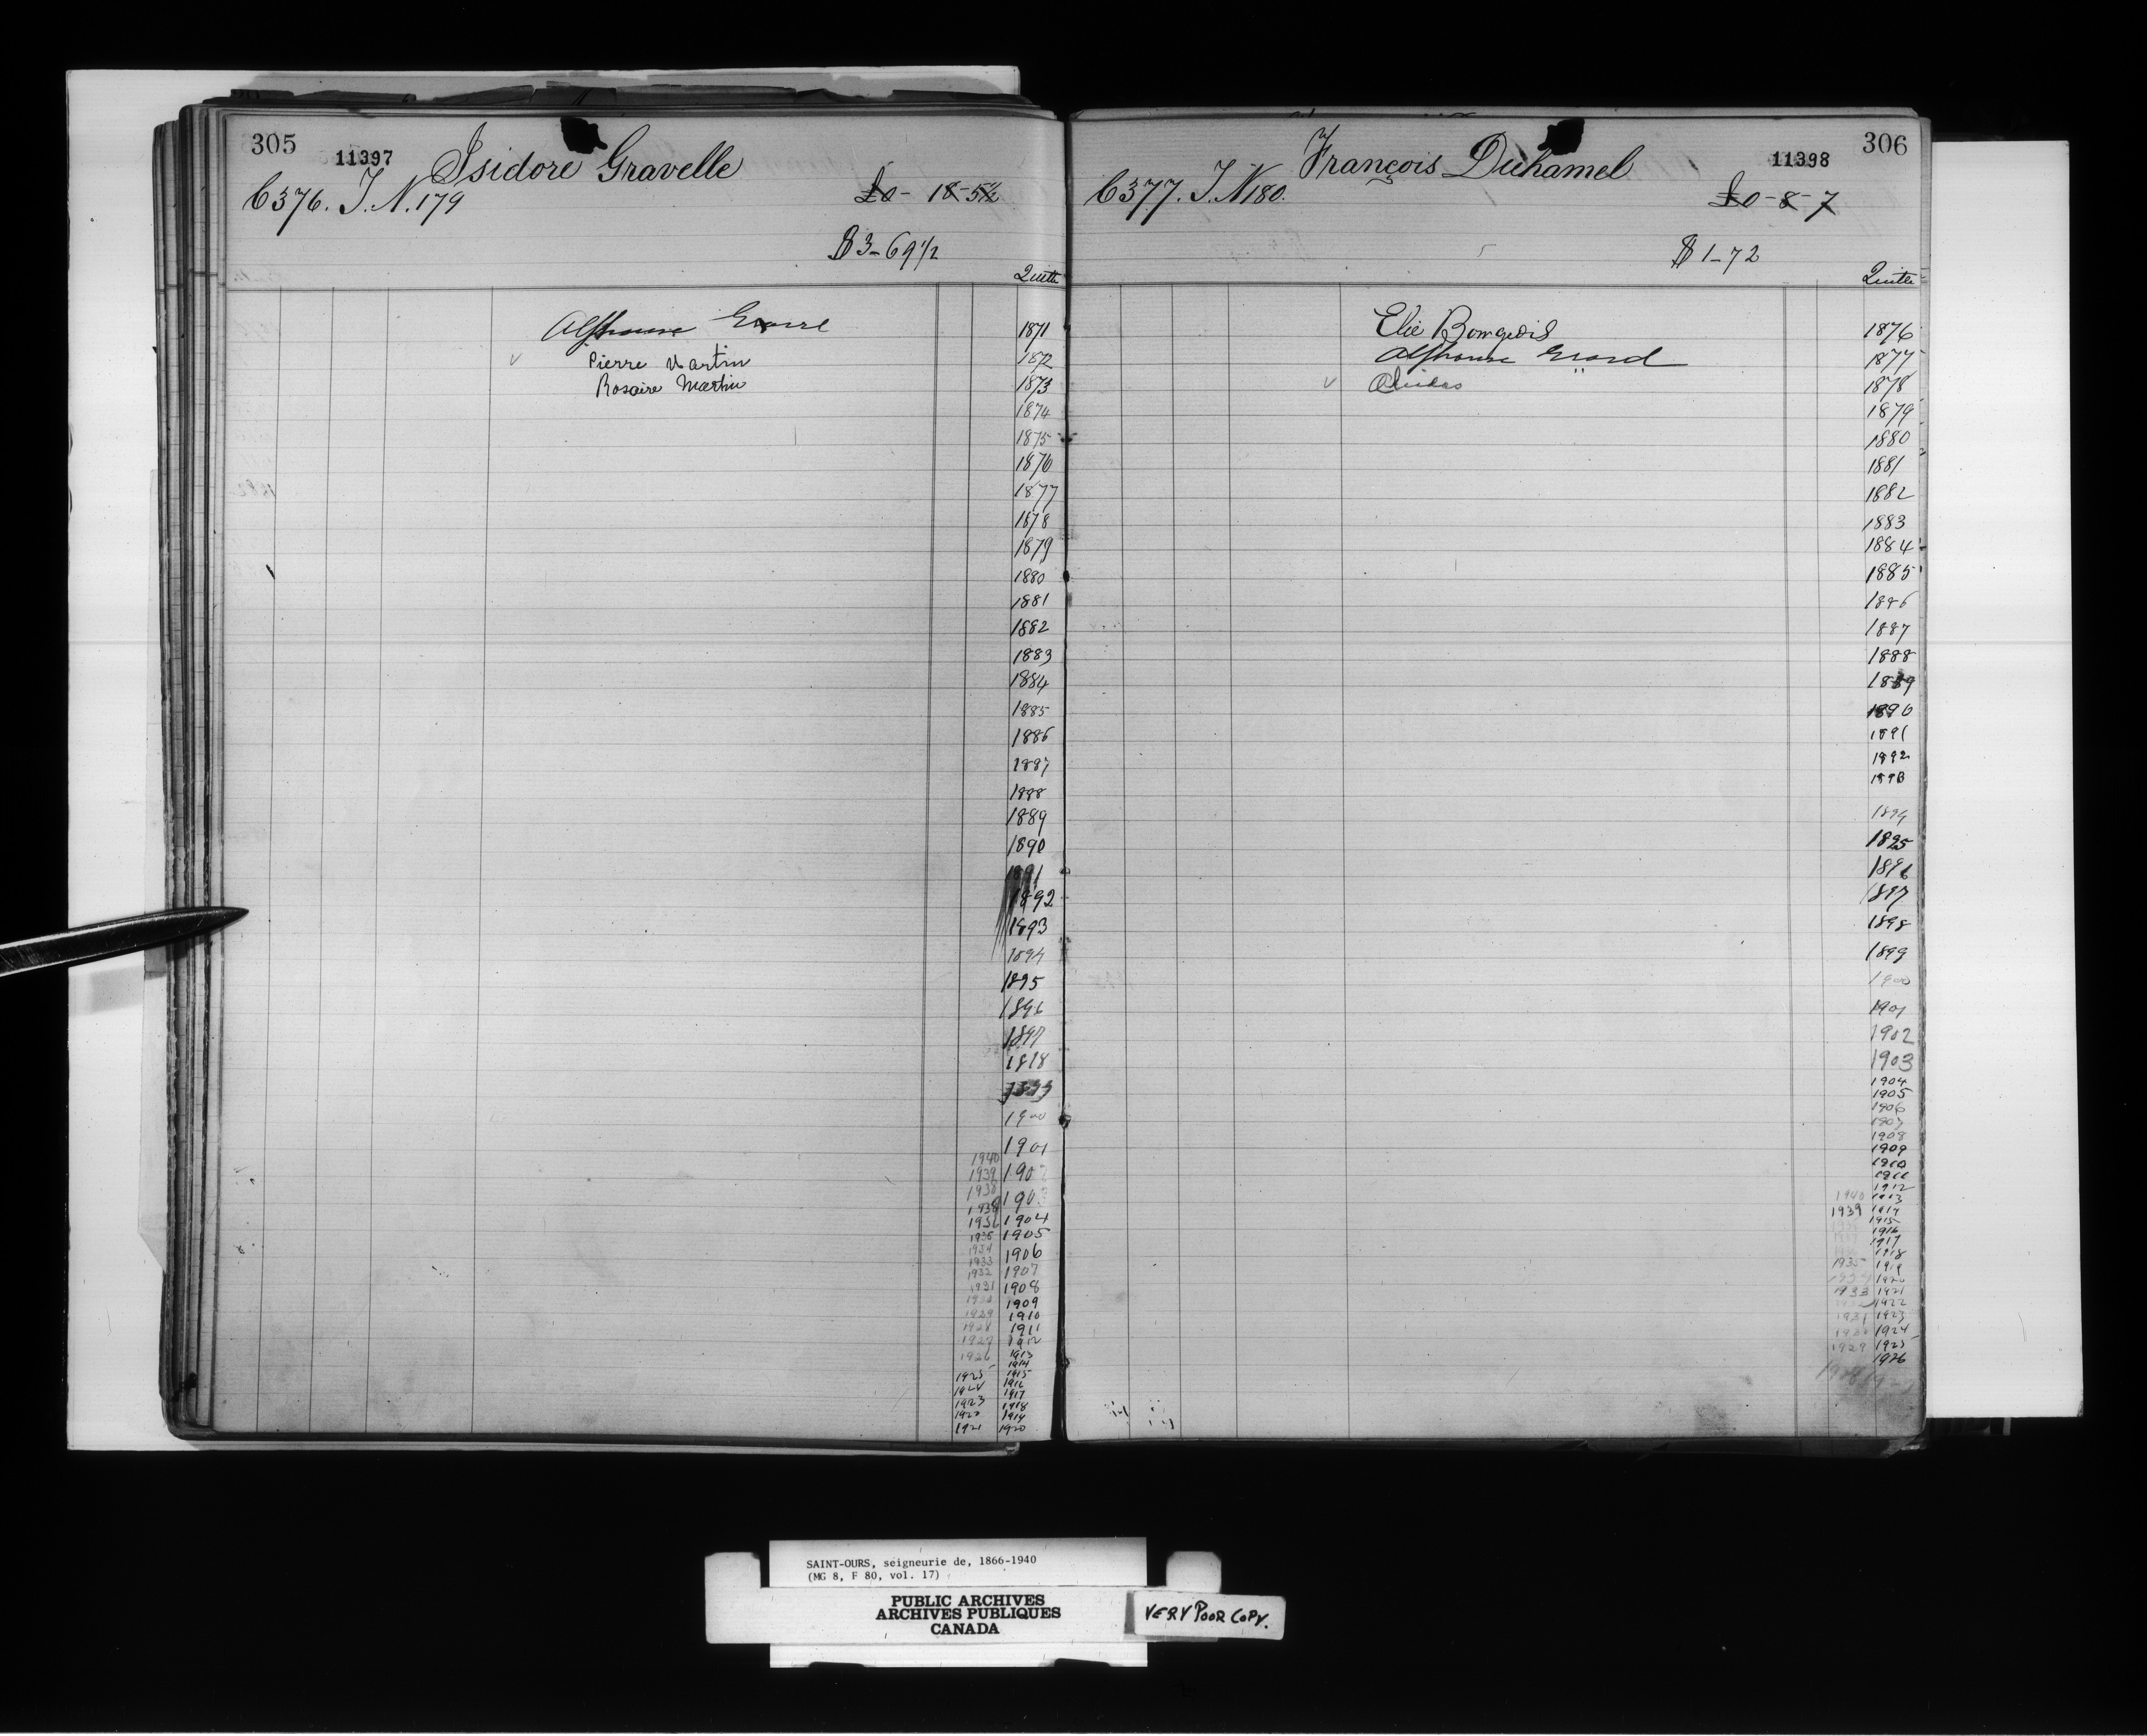 305
11397
Isidore Gravelle
C376. T. N. 179
£0 - 18 - 5½
$3-69 1/2
Quitte
Alphonse
Pierre Martin
Rosaire Martin
1871
1872
1873
1874
1875
1876
1877
1878
1879
1880
1881
1882
1883
1884
1885
1886
1887
1888
1889
1890
1891
1892
1893
1894
1895
1896
1897
1898
1899
1900
1901
1940
1939 1902
1938 1903
1936 1904
1935 1905
1934 1906
1933
1932 1907
1931 1908
1930 1909
1929 1910
1928 1911
1927 1912
1926 1913
1914
1925 1915
1924 1916
1917
1923 1918
1922 1919
1921 1920
306
11398
François Duhamel
C377. T. N 180.
£0 - 8 - 7
$1-72
Quitte
Elie Bourgeois
Alphonse Girard
1876
1877
1878
1879
1880
1881
1882
1883
1884
1885
1886
1887
1888
1889
1890
1891
1892
1893
1894
1895
1896
1897
1898
1899
1900
1901
1902
1903
1904
1905
1906
1907
1908
1909
1910
1911
1912
1940 1913
1939 1914
1915
1916
1917
1918
1935 1919
1934 1920
1933 1921
1922
1931 1923
1930 1924
1929 1925
1926
1928 1927
SAINT-OURS, seigneurie de, 1866-1940
(MG 8, F 80, vol. 17)
PUBLIC ARCHIVES
ARCHIVES PUBLIQUES
CANADA
VERY POOR COPY.